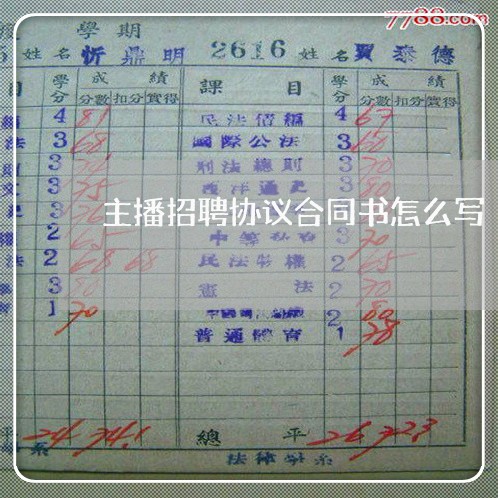 7788.com
學期
5 姓名 忻鼎明 2616 姓名 賈泰德
目 學分 成績 課目 學分 成績
分數 扣分 實得 分數 扣分 實得
4 81 民法債編 4 67
法 3 68 國際公法 3 60
3 刑法總則 3 70
文 3 75 西洋通史 3 80
主播招聘协议合同书怎么写
2 65 3 70
法 2 68 68 民法物權 2 65
3 80 憲法 2 70
1 70 2 80
普通體育 1 78
平 24 74.1 總平 26 72.3
系 法律學系